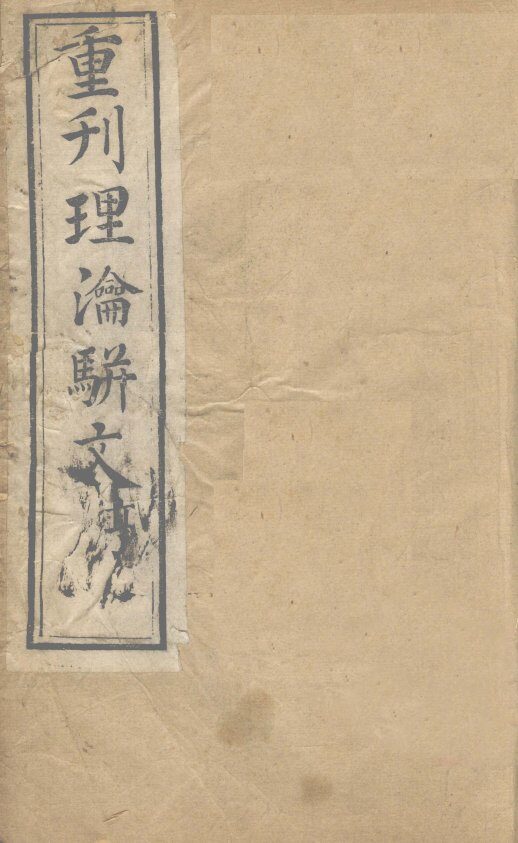 重刋理瀹駢文